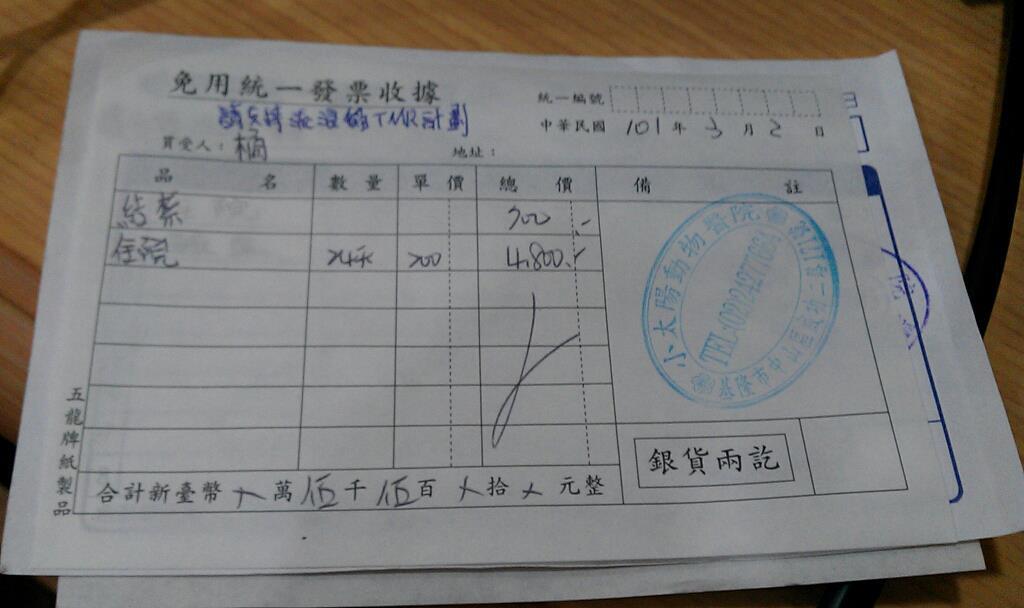 免用統一發票收據
統一編號
TNR計劃
中華民國 101 年 3 月 2 日
買受人：橘
地址：
品名 數量 單價 總價 備註
結紮 700.-
住院 24天 200 4,800.-
小太陽動物醫院
TEL:(02)24277684
基隆市中山區成功二路121號
銀貨兩訖
合計新臺幣 × 萬 伍 千 伍 百 × 拾 × 元整
五龍牌紙製品